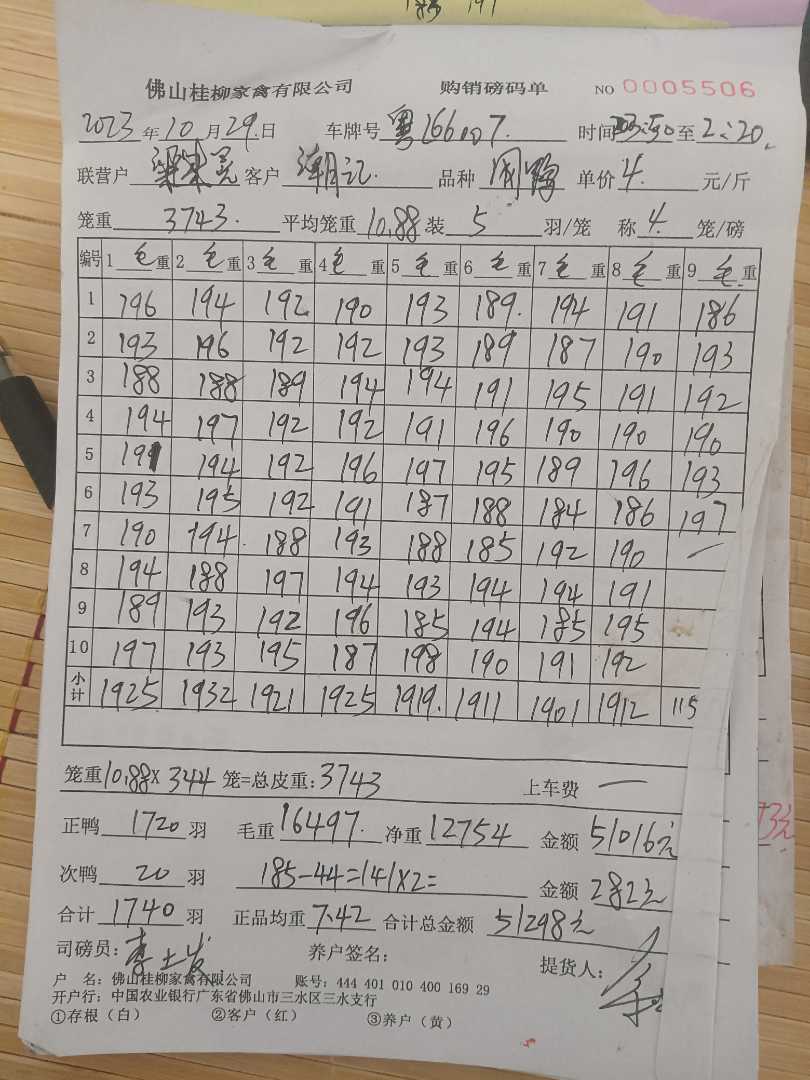 佛山桂柳家禽有限公司 购销磅码单 NO 0005506
2023年10月29日 车牌号 粤166 时间 至 2:20
联营户 客户 潮记 品种 单价 4 元/斤
笼重 3743 平均笼重 10.88 装 5 羽/笼 称 4 笼/磅
编号 1 毛重 2 毛重 3 毛重 4 毛重 5 毛重 6 毛重 7 毛重 8 毛重 9 毛重
1 196 194 192 190 193 189 194 191 186
2 193 196 192 192 193 189 187 190 193
3 188 188 189 194 194 191 195 191 192
4 194 197 192 192 191 196 190 190 190
5 191 194 192 196 197 195 189 196 193
6 193 195 192 191 187 188 184 186 197
7 190 194 188 193 188 185 192 190 —
8 194 188 197 194 193 194 194 191
9 189 193 192 196 185 194 185 195
10 197 193 195 187 198 190 191 192
小计 1925 1932 1921 1925 1919 1911 1901 1912 115
笼重 10.88 x 344 笼=总皮重: 3743 上车费 —
正鸭 1720 羽 毛重 16497 净重 12754 金额 51016元
次鸭 20 羽 185-44=141x2= 金额 282元
合计 1740 羽 正品均重 7.42 合计总金额 51298元
司磅员: 养户签名: 提货人:
户 名: 佛山桂柳家禽有限公司 账号: 444 401 010 400 169 29
开户行: 中国农业银行广东省佛山市三水区三水支行
①存根（白） ②客户（红） ③养户（黄）